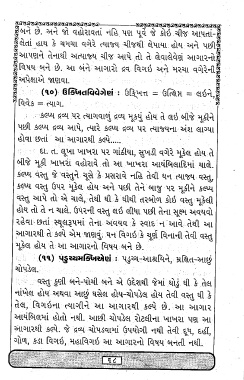 બને છે. અને જો વહોરાવતાં નહિ પણ પૂર્વે જે કોઇ ચીજ આપતાં-
લેતાં હાથ કે ચમચા વગેરે ત્યાજ્ય ચીજથી લેપાયા હોય અને પછી
આપણને તેનાથી અત્યાજ્ય ચીજ આપે તો તે લેવાલેવેણં આગારનો
વિષય બને છે. આ બંને આગારો દ્રવ વિગઇ અને મરચા વગેરેની
અપેક્ષાએ જાણવા.
(૧૦) ઉક્ખિત્તવિવેગેણં : ઉક્ખિત્ત = ઉત્ક્ષિપ્ત = લઇને,
વિવેક = ત્યાગ.
કલ્પ્ય દ્રવ્ય પર ત્યાગવાળું દ્રવ્ય મૂક્યું હોય તે લઇ બીજે મૂકીને
પછી કલ્પ્ય દ્રવ્ય આપે, ત્યારે કલ્પ્ય દ્રવ્ય પર ત્યાજ્યના અંશ લાગ્યા
હોવા છતાં આ આગારથી કલ્પે.....
દા. ત. લુખા ખાખરા પર ગાંઠીયા, સુખડી વગેરે મૂકેલ હોય તે
બીજે મૂકી ખાખરા વહોરાવે તો આ ખાખરા આયંબિલાદિમાં ચાલે.
કલ્પ્ય વસ્તુ જે વસ્તુને ચૂસે કે પ્રસરાવે નહિ તેવી ઘન ત્યાજ્ય વસ્તુ,
કલ્પ્ય વસ્તુ ઉપર મૂકેલ હોય અને પછી તેને બાજુ પર મૂકીને કલ્પ્ય
વસ્તુ આપે તો એ ચાલે, તેથી ઘી કે ઘીથી તરબોળ કોઇ વસ્તુ મૂકેલી
હોય તો તે ન ચાલે. ઉપરની વસ્તુ લઇ લીધા પછી તેના સૂક્ષ્મ અવયવો
રહેવા છતાં સ્થૂલરૂપમાં તેના અવયવ કે સ્વાદ ન આવે તેથી આ
આગારથી તે કલ્પે એમ જાણવું. ઘન વિગઇ કે ચૂર્ણ વિનાની તેવી વસ્તુ
મૂકેલ હોય તે આ આગારનો વિષય બને છે.
(૧૧) પડુચ્ચમક્ખિએણં : પડુચ્ચ-આશ્રયિને, મ્રક્ષિત-આછું
ચોપડેલ.
વસ્તુ કુણી બને-પોચી બને એ ઉદ્દેશથી જેમાં થોડું ઘી કે તેલ
નાંખેલ હોય અથવા આછું ઘસેલ હોય-ચોપડેલ હોય તેવી વસ્તુ ઘી કે
તેલ, વિગઇના ત્યાગીને આ આગારથી કલ્પે છે. આ આગાર
આયંબિલમાં હોતો નથી. આછી ચોપડેલ રોટલીના ખાખરા પણ આ
આગારથી કલ્પે. જે દ્રવ્ય ચોપડવામાં ઉપયોગી નથી તેવી દૂધ, દહીં,
ગોળ, કડા વિગઇ, મહાવિગઇ આ આગારનો વિષય બનતી નથી.
૬૮